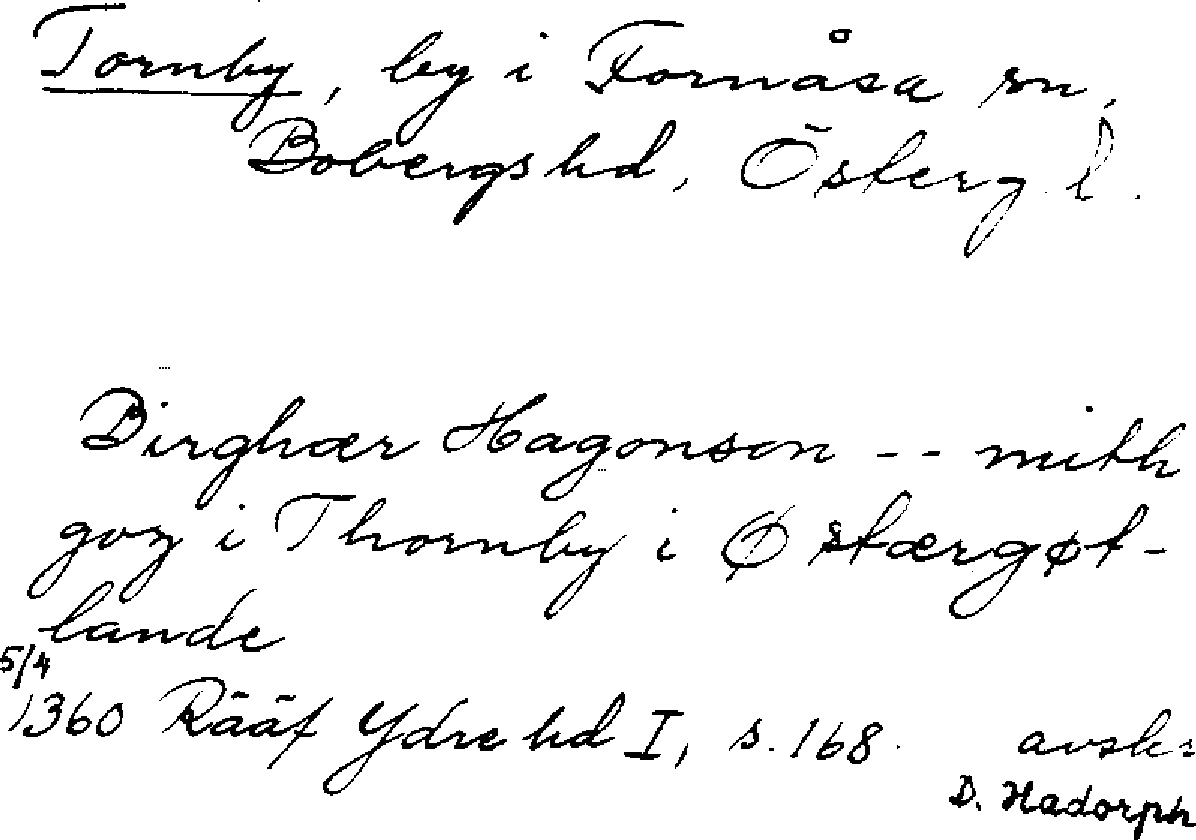 Tornby, by i Fornåsa sn,
Bobergs hd, Österg. l.
Birghær Hagonson -- mith
goz i Thornby i Østærgøt-
lande
5/4
1360 Rääf Ydre hd I, s. 168. avskr
D. Hadorph